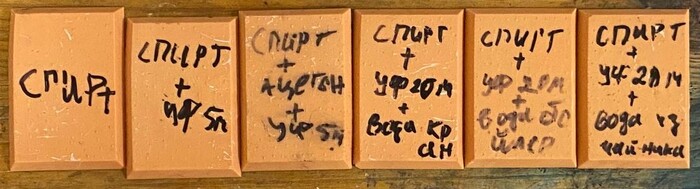 СПИРТ
СПИРТ
+
УФ 5м
СПИРТ
+
АЦЕТОН
+
УФ 5м
СПИРТ
+
УФ 20м
+
Вода КР
АН
СПИРТ
+
УФ 20м
+
Вода бо
йлер
СПИРТ
+
УФ 20м
+
вода из
чайника